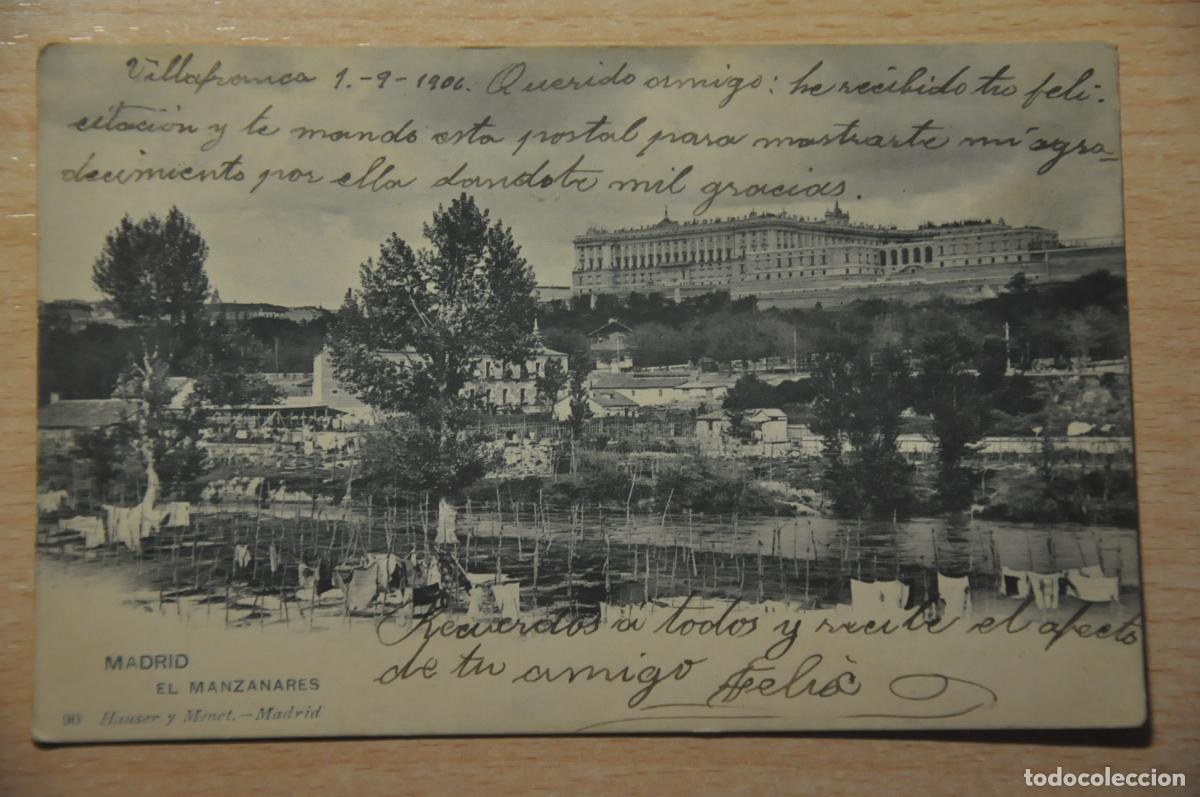 Villafranca 1.-9-1906. Querido amigo: he recibido tu feli-
citación y te mando esta postal para mostrarte mi agra-
decimiento por ella dandote mil gracias.
Recuerdos a todos y recibe el afecto
de tu amigo Felix
MADRID
EL MANZANARES
90 Hauser y Menet.—Madrid
todocoleccion